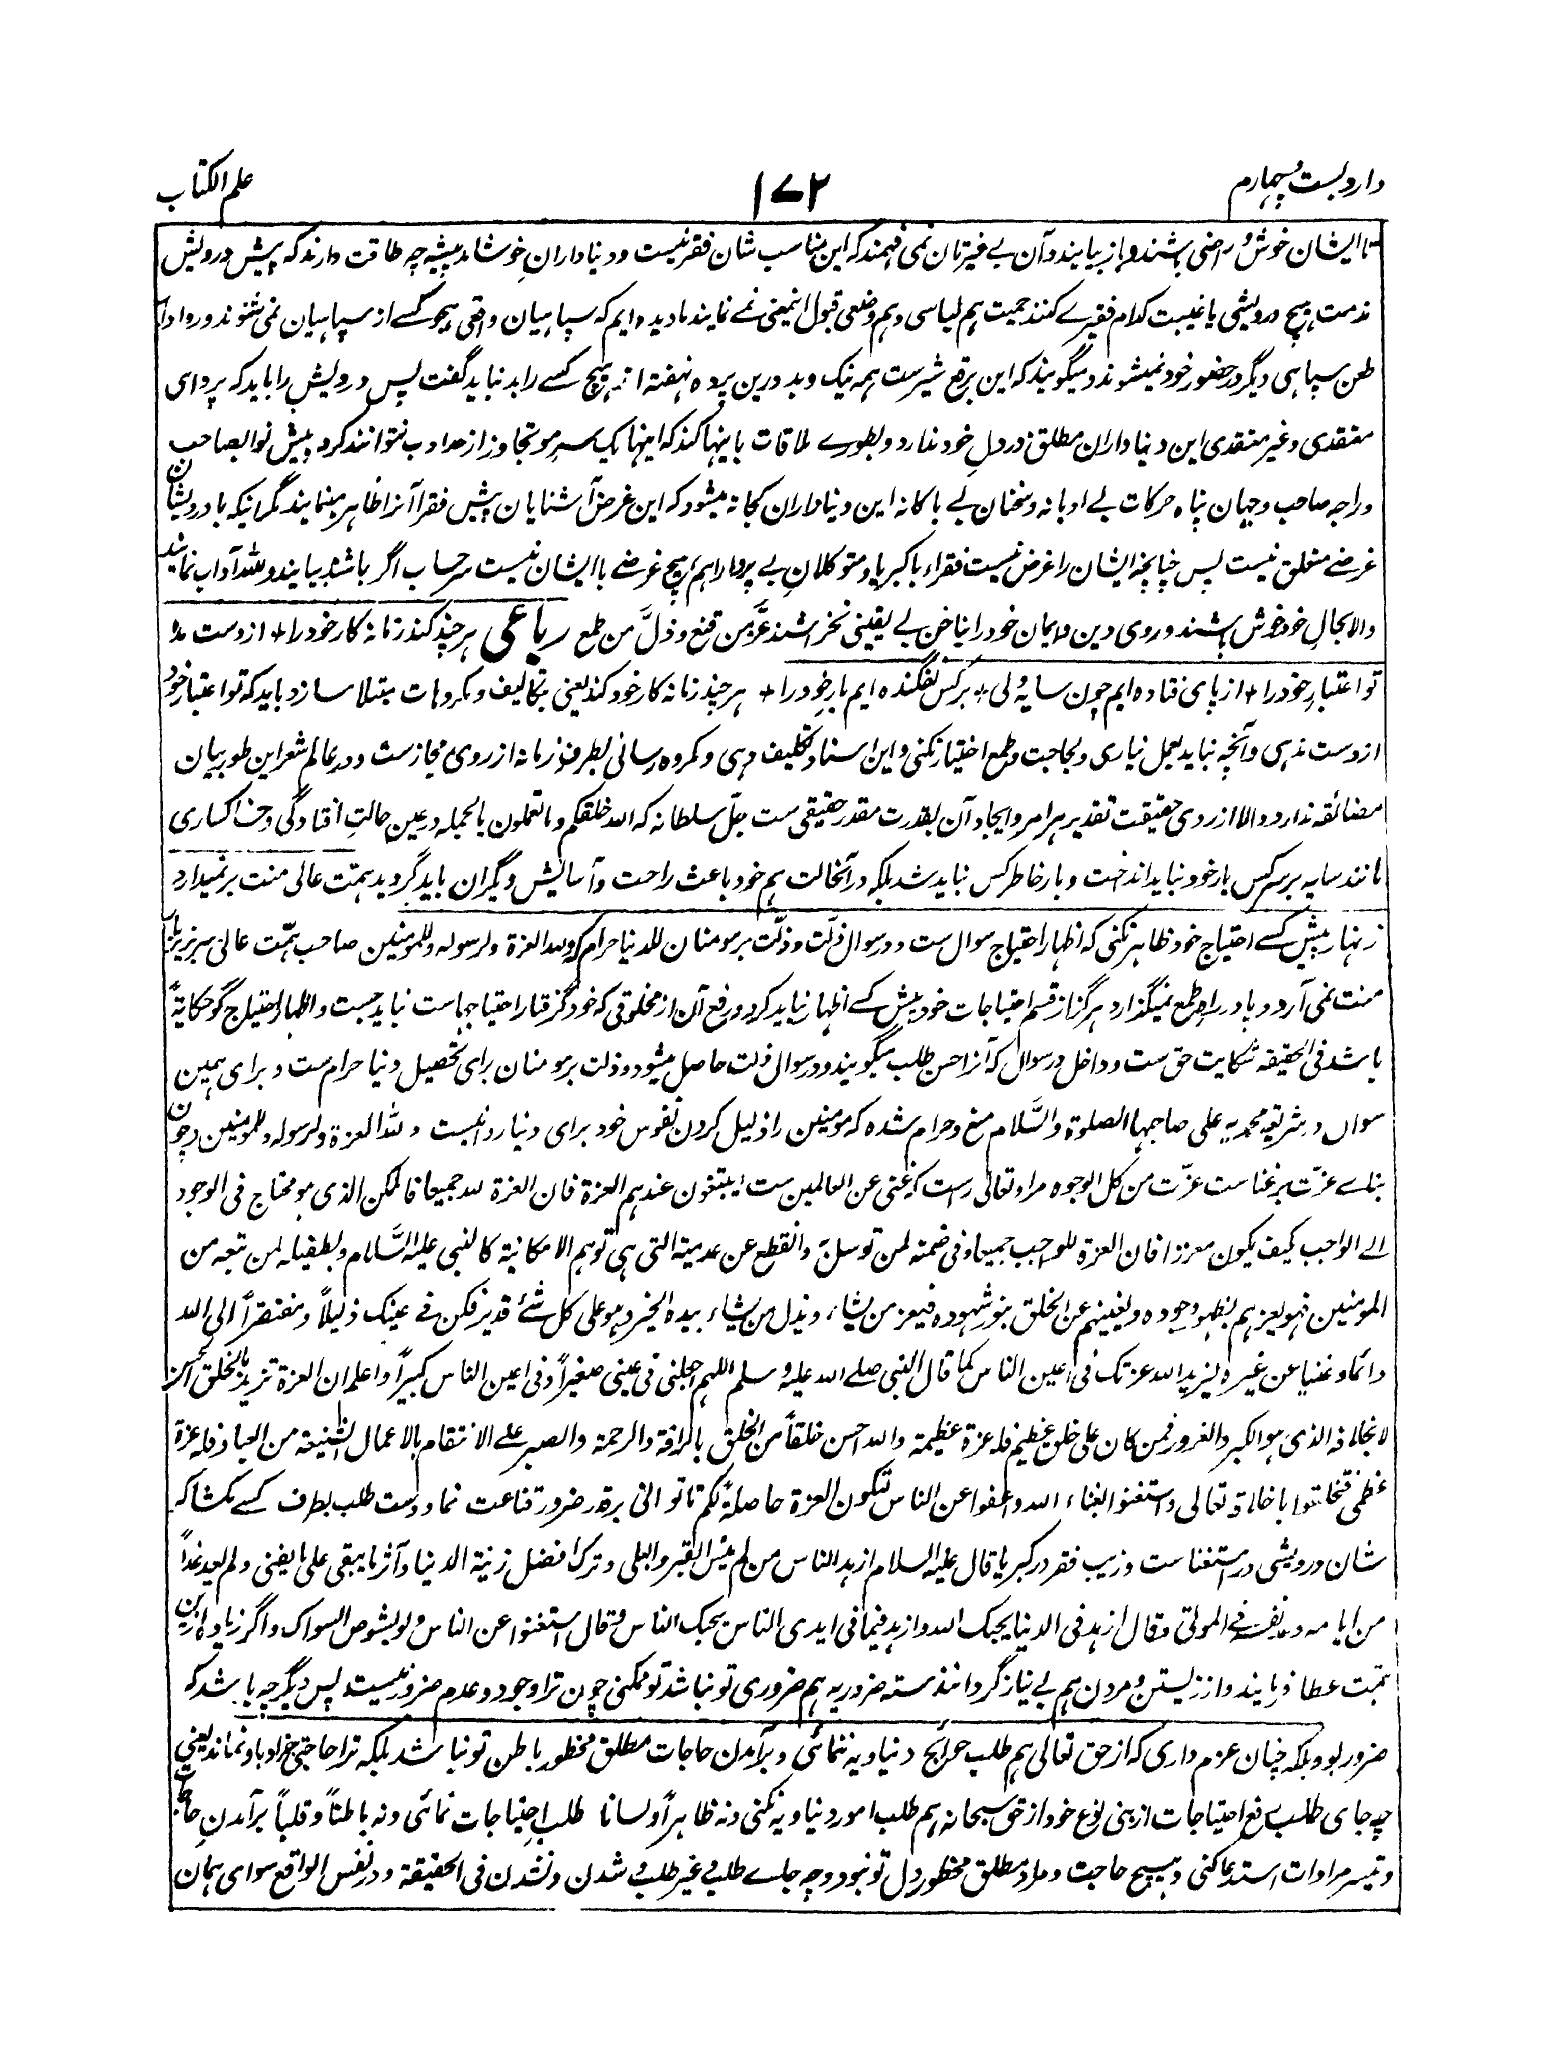 وارد بست و چهارم
۱۷۲
علم الکتاب
تا ایشان خوش و راضی باشند و باز بیایند و آن بے غیرتان نمی فہمند که این مناسب شان فقر نیست و دنیاداران خوشامد پیشه چه طاقت دارند که پیش درویش
مذمت ہیچ درویشی یا غیبت کدام فقیرے کنند حمیت ہم لباسی و ہم وضعی قبول اینمعنی نمے نماید ما دیده ایم که سپاہیان واقعی ہجو کسے از سپاہیان نمی شنوند و روادار
طعن سپاہی دیگر در حضور خود نمیشوند و میگویند که این برقع شیرست ہمه نیک و بد درین پرده نہفته اند ہیچ کسے را بد نباید گفت پس درویش را باید که پروای
معتقدی و غیر معتقدی این دنیاداران مطلق در دلِ خود ندارد و بطورے ملاقات باینہا کند که اینہا یک سر مو تجاوز از حد ادب نتوانند کرد و پیش نواب صاحب
و راجه صاحب و جہان پناه حرکات بے ادبانه و سخنان بے باکانه این دنیاداران کجا نه میشود که این غرض آشنایان پیش فقرا آنرا ظاہر مینمایند مگر اینکه با درویشان
غرضے متعلق نیست پس چنانچه ایشان را غرض نیست فقراء با کبریا و متوکلانِ بے پروا را ہم ہیچ غرضے با ایشان نیست سرحساب اگر باشند بیایند و لله آداب نمایند
والا بحالِ خود خوش باشند و روی دین و ایمان خود را بناخن بے یقینی نخراشند عَزَّ من قنع و ذلَّ من طمع رباعی ہر چند کند زمانه کار خود را + از دست مده
تو اعتبار خود را + از پای فتاده ایم چون سایه ولی + بر کس نفگنده ایم بار خود را + ہر چند زمانه کار خود کند یعنی بتکالیف و مکروہات مبتلا سازد باید که تو اعتبار خود
از دست ندہی و آنچه نباید بعمل نیاری و لجاجت و طمع اختیار نکنی و این اسناد تکلیف دہی و مکروه رسانی بطرف زمانه از روی مجازست و در عالم شعر این طور بیان
مضائقه ندارد والا از روی حقیقت تقدیر ہر امر و ایجاد آن بقدرت مقدر حقیقی ست جلّ سلطانه که الله خلقکم و ما تعملون بالجمله در عین حالتِ افتادگی و خاکساری
مانند سایه بر سر کس بار خود نباید انداخت و بار خاطر کس نباید شد بلکه در آنحالت ہم خود باعث راحت و آسایش دیگران باید گردید ہمّت عالی منت بر نمیدارد
زنہار پیش کسے احتیاج خود ظاہر نکنی که اظہار احتیاج سوال ست و در سوال ذلت و ذلّت بر مومنان للدنیا حرام که ولله العزة و لرسوله و للمومنین صاحب ہمّت عالی سر بزیر بار
منت نمی آرد و پا در راه طمع نمیگذارد ہرگز از قسم احتیاجات خود پیش کسے اظہار نباید کرد و رفع آن از مخلوقی که خود گرفتار احتیاجہاست نباید جست و اظہار احتیاج گو حکایةً
باشد فی الحقیقه شکایت حق ست و داخل در سوال که آنرا حسن طلب میگویند و در سوال ذلت حاصل میشود و ذلت بر مومنان برای تحصیل دنیا حرام ست و برای ہمین
سوال در شریعة محمدیه علی صاحبہا الصلوة والسَّلام منع و حرام شده که مومنین را ذلیل کردن نفوس خود برای دنیا روا نیست و لله العزة و لرسوله و للمومنین و چون
بناے عزّت بر غناست عزّت من کل الوجوه مر او تعالی راست که غنی عن العالمین ست ایبتغون عندہم العزة فان العزة لله جمیعا فالممکن الذی ہو محتاج فی الوجود
الے الواجب کیف یکون معززا فان العزة للواجب جمیعا و فی ضمنه لمن توسل به وانقطع عن عدمیته التی ہی توہم الامکانیة کالنبی علیه السَّلام و بطفیله لمن تبعه من
المومنین فہو یعزہم بظہور وجوده و یغنیہم عن الخلق بنور شہوده فیعز من یشاء و یذل من یشاء بیده الخیر و ہو علی کل شئ قدیر فکن فے عینک ذلیلاً و مفتقراً الی الله
دائما و غنیا عن غیره لیزید الله عزتک فی اعین الناس کما قال النبی صلے الله علیه و سلم اللہم اجعلنی فی عینی صغیراً و فی اعین الناس کبیراً واعلم ان العزة تزید بالخلق الحسن
لا بخلافه الذی ہو الکبر والغرور فمن کان علی خلق عظیم فله عزة عظیمة والله احسن خلقاً من الخلق بالرافة والرحمة والصبر علے الانتقام بالاعمال الشنیعة من العباد فله عزة
عظمی فتخلقوا باخلاقه تعالی واستغنوا بغناء الله واعفوا عن الناس لتکون العزة حاصلةً لکم تا توانی بر قدر ضرور قناعت نما و دست طلب بطرف کسے مکشا که
شان درویشی در استغناست و زیب فقر در کبریا قال علیه السلام ازہد الناس من لم ینس القبر والبلی و ترک افضل زینة الدنیا و آثر ما یبقی علی ما یفنی و لم یعد غداً
من ایامه وعد نفسه فے الموتی و قال ازہد فی الدنیا یحبک الله وازہد فیما فی ایدی الناس یحبک الناس و قال استغنوا عن الناس ولو بشوص السواک و اگر زیاده ازین
ہمّت عطا فرمایند و از زیستن و مردن ہم بے نیاز گردانند سته ضروریه ہم ضروری تو نباشد تو ممکنی چون ترا وجود و عدم ضرور نیست پس دیگر چه باشد که
ضرور بود بلکه چنان عزم داری که از حق تعالی ہم طلب حوائج دنیاویه ننمائی و برآمدن حاجات مطلق محظور باطن تو نباشد بلکه ترا حاجتی جز او باو نماند یعنی
چه جای طلب رفع احتیاجات از بنی نوع خود از حق سبحانه ہم طلب امور دنیاویه نکنی و نه ظاہراً و لسانا طلب احتیاجات نمائی و نه باطناً و قلباً برآمدنِ حاجات
و تیسر مرادات استدعا کنی و ہیچ حاجت و مراد مطلق محظور دل تو نبود و چه جاے طلب و غیر طلب و شدن و نشدن فی الحقیقة و در نفس الواقع سوای ہمان